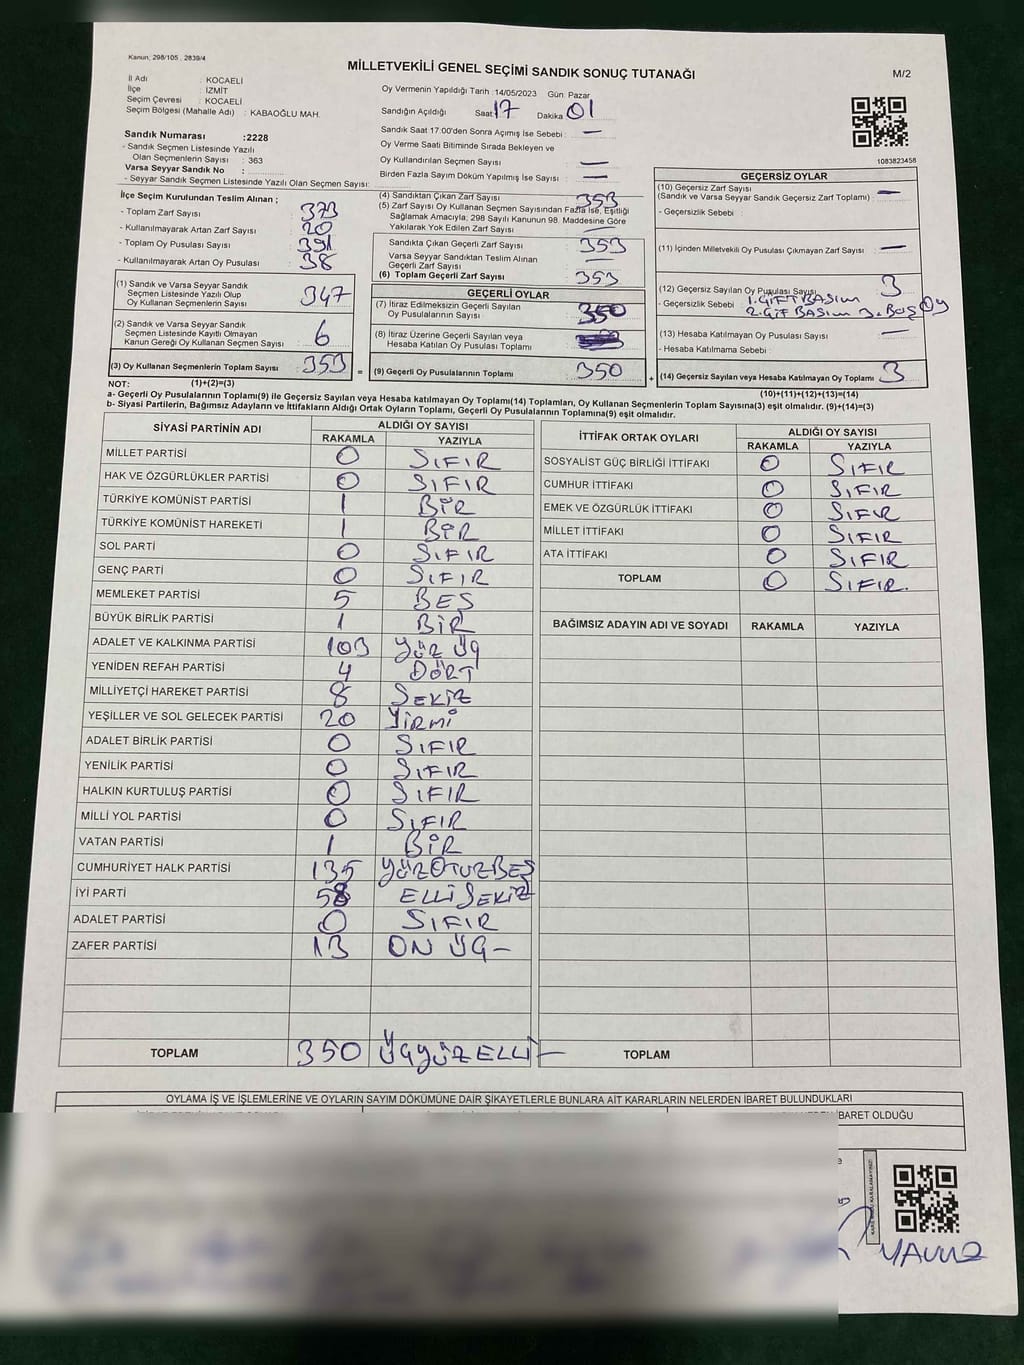 Kanun: 298/105 , 2839/4
MİLLETVEKİLİ GENEL SEÇİMİ SANDIK SONUÇ TUTANAĞI
M/2
İl Adı : KOCAELİ
İlçe : İZMİT
Seçim Çevresi : KOCAELİ
Seçim Bölgesi (Mahalle Adı) : KABAOĞLU MAH.
Oy Vermenin Yapıldığı Tarih :14/05/2023 Gün: Pazar
Sandığın Açıldığı Saat 17 Dakika 01
Sandık Saat 17:00'den Sonra Açımış İse Sebebi : —
Oy Verme Saati Bitiminde Sırada Bekleyen ve
Oy Kullandırılan Seçmen Sayısı : —
Birden Fazla Sayım Döküm Yapılmış İse Sayısı : —
1083823458
Sandık Numarası :2228
- Sandık Seçmen Listesinde Yazılı
Olan Seçmenlerin Sayısı : 363
Varsa Seyyar Sandık No :
- Seyyar Sandık Seçmen Listesinde Yazılı Olan Seçmen Sayısı:
İlçe Seçim Kurulundan Teslim Alınan ;
- Toplam Zarf Sayısı : 373
- Kullanılmayarak Artan Zarf Sayısı : 20
- Toplam Oy Pusulası Sayısı : 391
- Kullanılmayarak Artan Oy Pusulası : 38
(1) Sandık ve Varsa Seyyar Sandık
Seçmen Listesinde Yazılı Olup
Oy Kullanan Seçmenlerin Sayısı : 347
(2) Sandık ve Varsa Seyyar Sandık
Seçmen Listesinde Kayıtlı Olmayan
Kanun Gereği Oy Kullanan Seçmen Sayısı : 6
(3) Oy Kullanan Seçmenlerin Toplam Sayısı : 353 =
(4) Sandıktan Çıkan Zarf Sayısı : 353
(5) Zarf Sayısı Oy Kullanan Seçmen Sayısından Fazla İse, Eşitliği
Sağlamak Amacıyla, 298 Sayılı Kanunun 98. Maddesine Göre
Yakılarak Yok Edilen Zarf Sayısı : —
Sandıkta Çıkan Geçerli Zarf Sayısı : 353
Varsa Seyyar Sandıktan Teslim Alınan
Geçerli Zarf Sayısı : —
(6) Toplam Geçerli Zarf Sayısı : 353
GEÇERLİ OYLAR
(7) İtiraz Edilmeksizin Geçerli Sayılan
Oy Pusulalarının Sayısı : 350
(8) İtiraz Üzerine Geçerli Sayılan veya
Hesaba Katılan Oy Pusulası Toplamı :
(9) Geçerli Oy Pusulalarının Toplamı : 350 +
GEÇERSİZ OYLAR
(10) Geçersiz Zarf Sayısı
(Sandık ve Varsa Seyyar Sandık Geçersiz Zarf Toplamı) : —
- Geçersizlik Sebebi :
(11) İçinden Milletvekili Oy Pusulası Çıkmayan Zarf Sayısı : —
(12) Geçersiz Sayılan Oy Pusulası Sayısı : 3
- Geçersizlik Sebebi : 1.ÇİFT BASIM
2.ÇİF BASIM 3.BOŞ OY
(13) Hesaba Katılmayan Oy Pusulası Sayısı : —
- Hesaba Katılmama Sebebi :
(14) Geçersiz Sayılan veya Hesaba Katılmayan Oy Toplamı : 3
NOT: (1)+(2)=(3) (10)+(11)+(12)+(13)=(14)
a- Geçerli Oy Pusulaları Toplamı(9) ile Geçersiz Sayılan veya Hesaba katılmayan Oy Toplamı(14) Toplamları, Oy Kullanan Seçmenlerin Toplam Sayısına(3) eşit olmalıdır. (9)+(14)=(3)
b- Siyasi Partilerin, Bağımsız Adayların ve İttifakların Aldığı Ortak Oyların Toplamı, Geçerli Oy Pusulalarının Toplamına(9) eşit olmalıdır.
SİYASİ PARTİNİN ADI ALDIĞI OY SAYISI
RAKAMLA YAZIYLA
MİLLET PARTİSİ 0 SIFIR
HAK VE ÖZGÜRLÜKLER PARTİSİ 0 SIFIR
TÜRKİYE KOMÜNİST PARTİSİ 1 BİR
TÜRKİYE KOMÜNİST HAREKETİ 1 BİR
SOL PARTİ 0 SIFIR
GENÇ PARTİ 0 SIFIR
MEMLEKET PARTİSİ 5 BEŞ
BÜYÜK BİRLİK PARTİSİ 1 BİR
ADALET VE KALKINMA PARTİSİ 103 YÜZ ÜÇ
YENİDEN REFAH PARTİSİ 4 DÖRT
MİLLİYETÇİ HAREKET PARTİSİ 8 SEKİZ
YEŞİLLER VE SOL GELECEK PARTİSİ 20 YİRMİ
ADALET BİRLİK PARTİSİ 0 SIFIR
YENİLİK PARTİSİ 0 SIFIR
HALKIN KURTULUŞ PARTİSİ 0 SIFIR
MİLLİ YOL PARTİSİ 0 SIFIR
VATAN PARTİSİ 1 BİR
CUMHURİYET HALK PARTİSİ 135 YÜZOTUZBEŞ
İYİ PARTİ 58 ELLİ SEKİZ
ADALET PARTİSİ 0 SIFIR
ZAFER PARTİSİ 13 ON ÜÇ —
TOPLAM 350 ÜÇYÜZELLİ —
İTTİFAK ORTAK OYLARI ALDIĞI OY SAYISI
RAKAMLA YAZIYLA
SOSYALİST GÜÇ BİRLİĞİ İTTİFAKI 0 SIFIR
CUMHUR İTTİFAKI 0 SIFIR
EMEK VE ÖZGÜRLÜK İTTİFAKI 0 SIFIR
MİLLET İTTİFAKI 0 SIFIR
ATA İTTİFAKI 0 SIFIR
TOPLAM 0 SIFIR.
BAĞIMSIZ ADAYIN ADI VE SOYADI RAKAMLA YAZIYLA
TOPLAM
OYLAMA İŞ VE İŞLEMLERİNE VE OYLARIN SAYIM DÖKÜMÜNE DAİR ŞİKAYETLERLE BUNLARA AİT KARARLARIN NELERDEN İBARET BULUNDUKLARI
İBARET OLDUĞU
YAVUZ